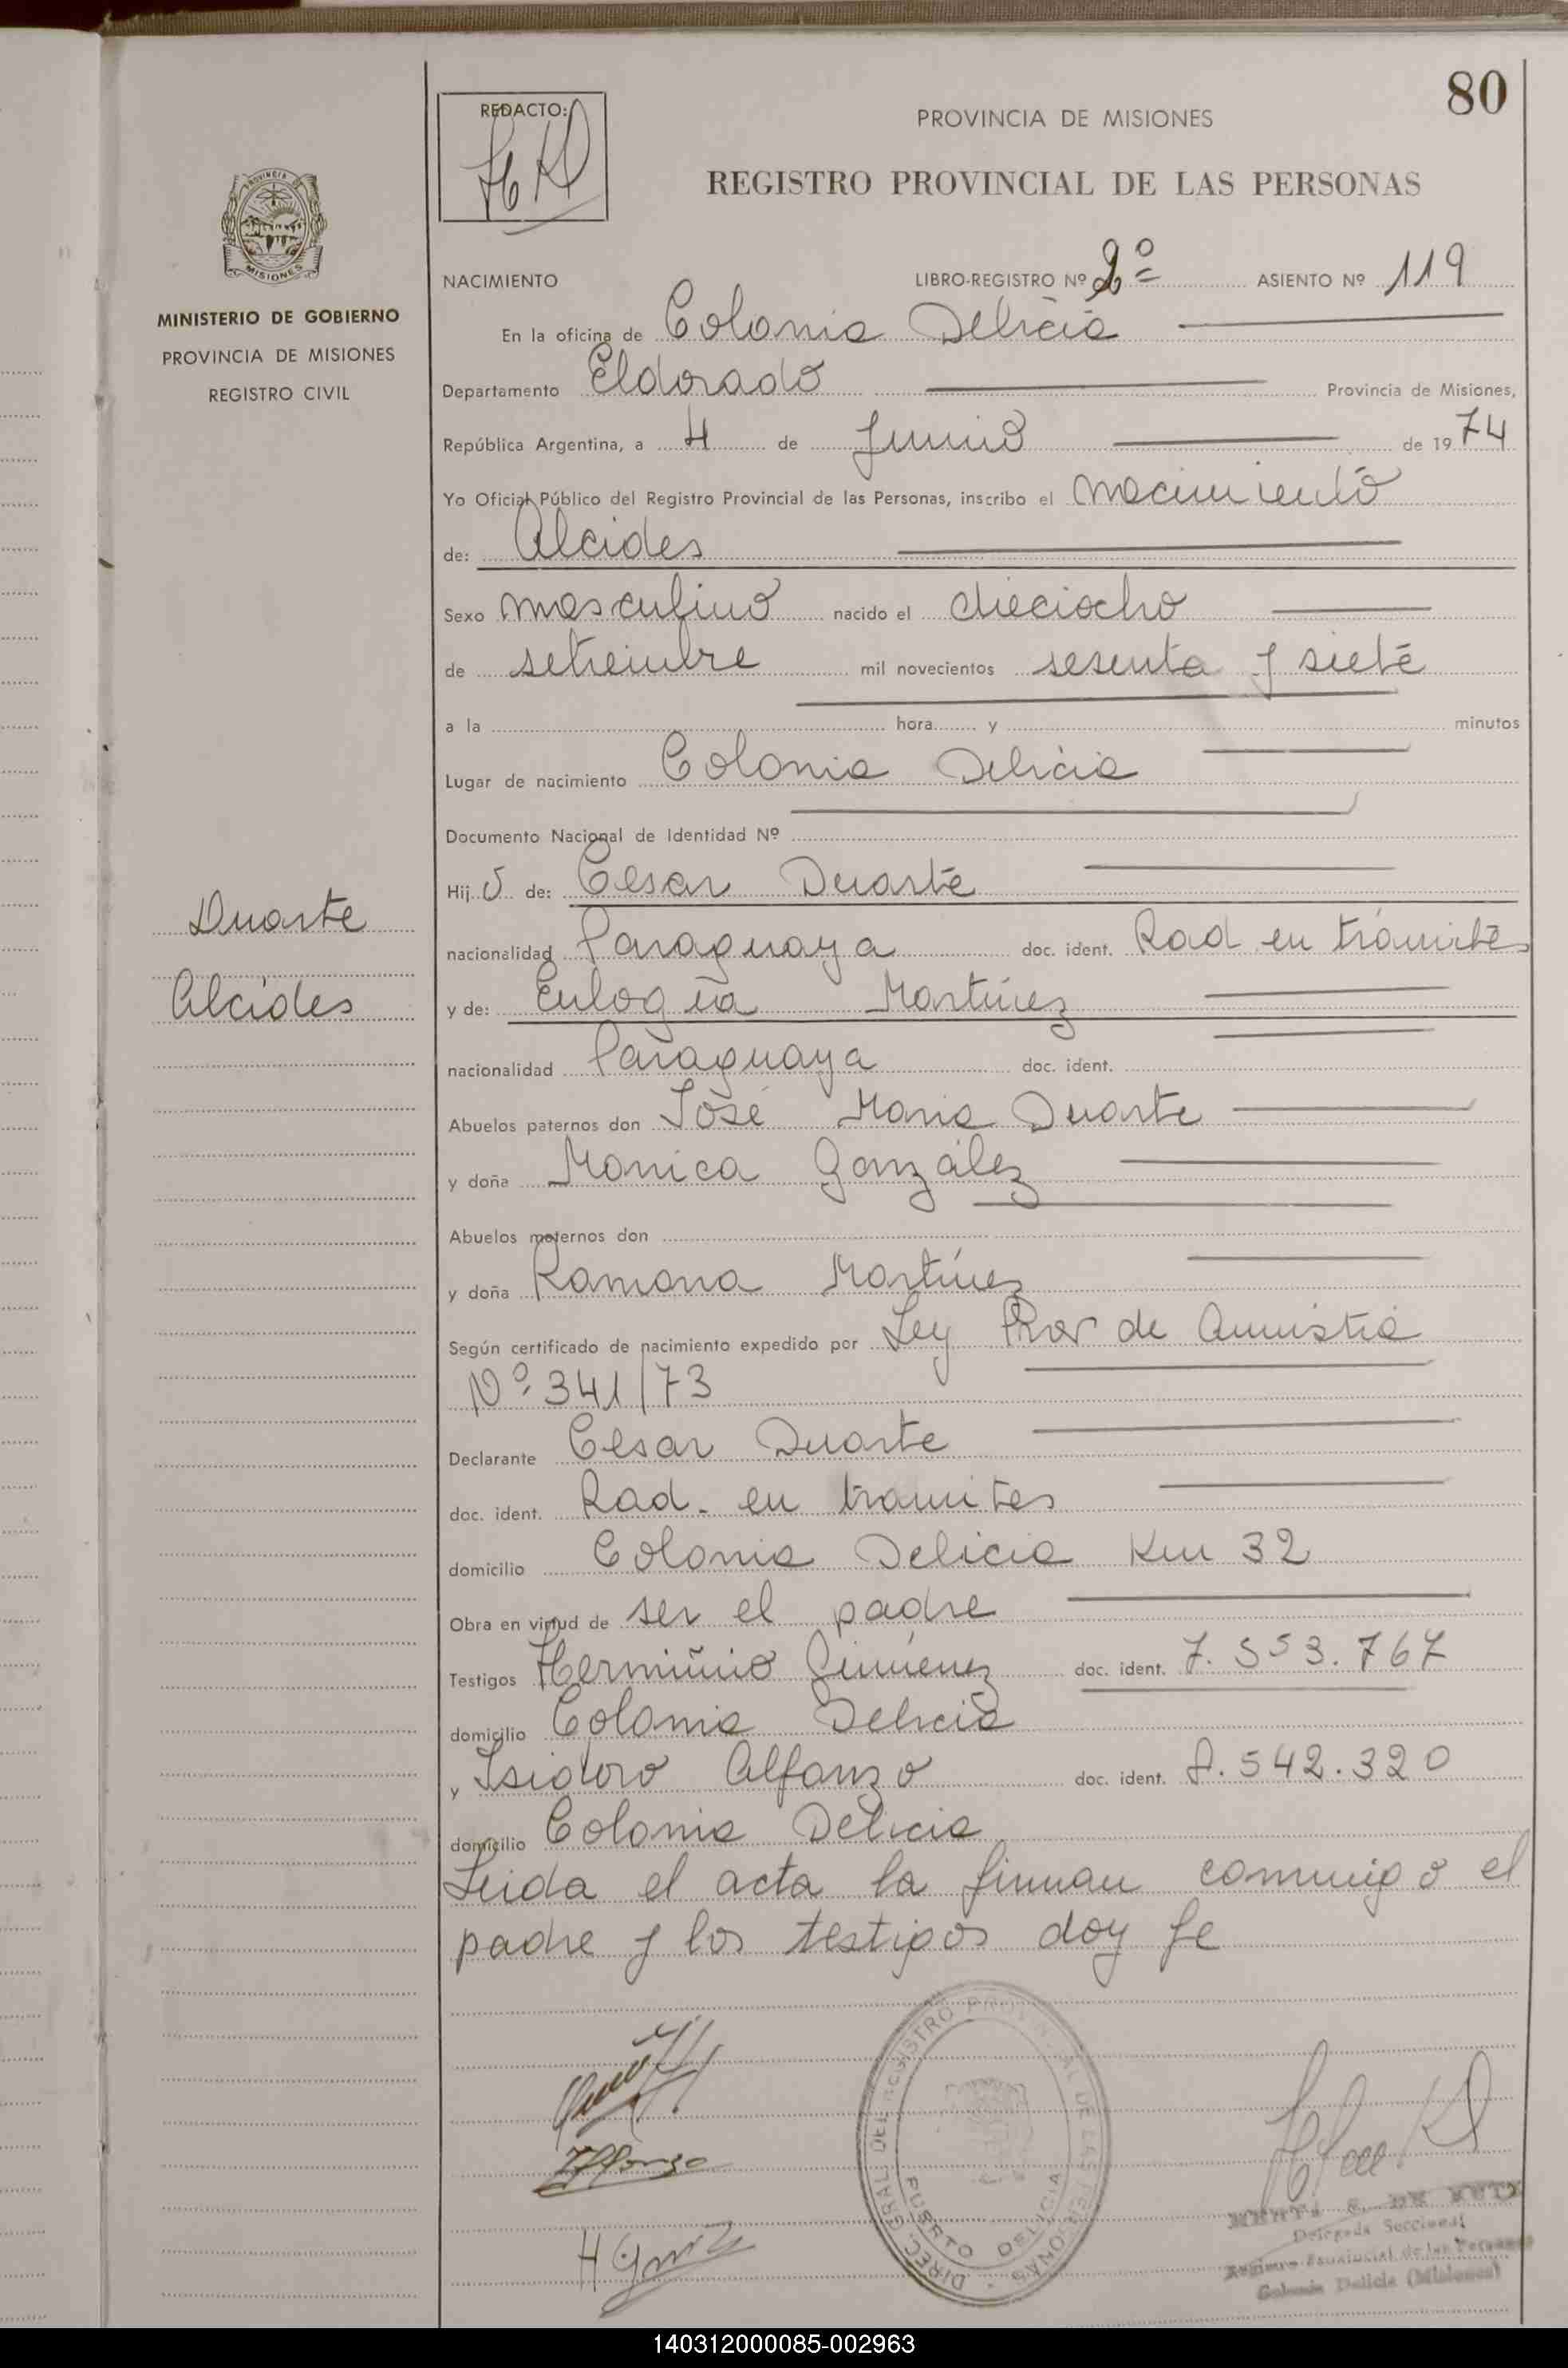 80
REDACTO:
PROVINCIA DE MISIONES
REGISTRO PROVINCIAL DE LAS PERSONAS
MISIONES
MINISTERIO DE GOBIERNO
PROVINCIA DE MISIONES
REGISTRO CIVIL
NACIMIENTO LIBRO-REGISTRO Nº 2º ASIENTO Nº 119
En la oficina de Colonia Delicia
Departamento Eldorado Provincia de Misiones,
República Argentina, a 4 de Junio de 1974
Yo Oficial Público del Registro Provincial de las Personas, inscribo el nacimiento
de: Alcides
Sexo masculino nacido el dieciocho
de setiembre mil novecientos sesenta y siete
a la hora y minutos
Lugar de nacimiento Colonia Delicia
Documento Nacional de Identidad Nº
Hijo de: Cesar Duarte
Duarte
Alcides
nacionalidad Paraguaya doc. ident. Rad en trámites
y de: Eulogia Martínez
nacionalidad Paraguaya doc. ident.
Abuelos paternos don José Maria Duarte
y doña Monica González
Abuelos maternos don
y doña Ramona Martínez
Según certificado de nacimiento expedido por Ley Pror de Amnistia
Nº 341/73
Declarante Cesar Duarte
doc. ident. Rad. en tramites
domicilio Colonia Delicia Km 32
Obra en virtud de ser el padre
Testigos Herminio Giménez doc. ident. 7.553.767
domicilio Colonia Delicia
y Isidoro Alfonzo doc. ident. 8.542.320
domicilio Colonia Delicia
Leida el acta la firman conmigo el
padre y los testigos doy fe
DIREC. GRAL. DEL REGISTRO PROVINCIAL DE LAS PERSONAS
PUERTO DELICIA
Delegada Seccional
Registro Provincial de las Personas
Colonia Delicia (Misiones)
140312000085-002963